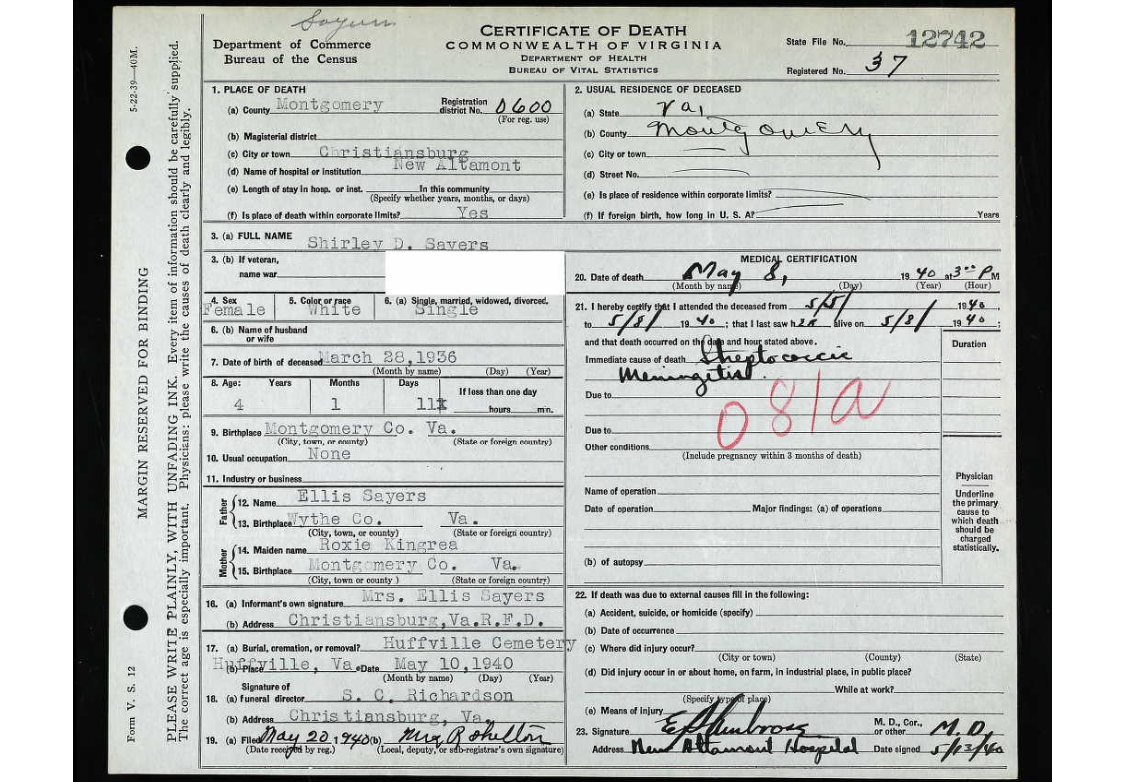 Sayers
CERTIFICATE OF DEATH
COMMONWEALTH OF VIRGINIA
DEPARTMENT OF HEALTH
BUREAU OF VITAL STATISTICS
Department of Commerce
Bureau of the Census
State File No. 12742
Registered No. 37
5-22-39—40M.
MARGIN RESERVED FOR BINDING
Form V. S. 12
PLEASE WRITE PLAINLY, WITH UNFADING INK. Every item of information should be carefully supplied.
The correct age is especially important. Physicians: please write the causes of death clearly and legibly.
1. PLACE OF DEATH
(a) County Montgomery Registration district No. 0600
(For reg. use)
(b) Magisterial district
(c) City or town Christiansburg
(d) Name of hospital or institution New Altamont
(e) Length of stay in hosp. or inst. In this community
(Specify whether years, months, or days)
(f) Is place of death within corporate limits? Yes
2. USUAL RESIDENCE OF DECEASED
(a) State Va,
(b) County Montgomery
(c) City or town
(d) Street No.
(e) Is place of residence within corporate limits?
(f) If foreign birth, how long in U. S. A? Years
3. (a) FULL NAME Shirley D. Sayers
3. (b) If veteran,
name war
4. Sex Female
5. Color or race White
6. (a) Single, married, widowed, divorced. Single
6. (b) Name of husband
or wife
7. Date of birth of deceased March 28,1936
(Month by name) (Day) (Year)
8. Age: Years Months Days If less than one day
4 1 11 hours min.
9. Birthplace Montgomery Co. Va.
(City, town, or county) (State or foreign country)
10. Usual occupation None
11. Industry or business
Father
12. Name Ellis Sayers
13. Birthplace Wythe Co. Va.
(City, town, or county) (State or foreign country)
Mother
14. Maiden name Roxie Kingrea
15. Birthplace Montgomery Co. Va.
(City, town or county ) (State or foreign country)
16. (a) Informant's own signature Mrs. Ellis Sayers
(b) Address Christiansburg,Va.R.F.D.
17. (a) Burial, cremation, or removal? Huffville Cemetery
(b) Place Huffville, Va. Date May 10,1940
(Month by name) (Day) (Year)
Signature of
18. (a) funeral director S. C. Richardson
(b) Address Christiansburg, Va.
19. (a) Filed May 20, 1940 (b) Mrs R Shelton
(Date received by reg.) (Local, deputy, or sub-registrar's own signature)
MEDICAL CERTIFICATION
20. Date of death May 8, 1940 at 3:00 P M
(Month by name) (Day) (Year) (Hour)
21. I hereby certify that I attended the deceased from 5/5/ 1940
to 5/8/ 1940; that I last saw her alive on 5/8/ 1940;
and that death occurred on the date and hour stated above. Duration
Immediate cause of death Streptococcic
Meningitis.
Due to
081a
Due to
Other conditions
(Include pregnancy within 3 months of death)
Name of operation
Date of operation Major findings: (a) of operations
(b) of autopsy
Physician
Underline
the primary
cause to
which death
should be
charged
statistically.
22. If death was due to external causes fill in the following:
(a) Accident, suicide, or homicide (specify)
(b) Date of occurrence
(c) Where did injury occur?
(City or town) (County) (State)
(d) Did injury occur in or about home, on farm, in industrial place, in public place?
While at work?
(Specify type of place)
(e) Means of injury
23. Signature M. D., Cor., or other M. D.
Address New Altamont Hospital Date signed 5/13/40